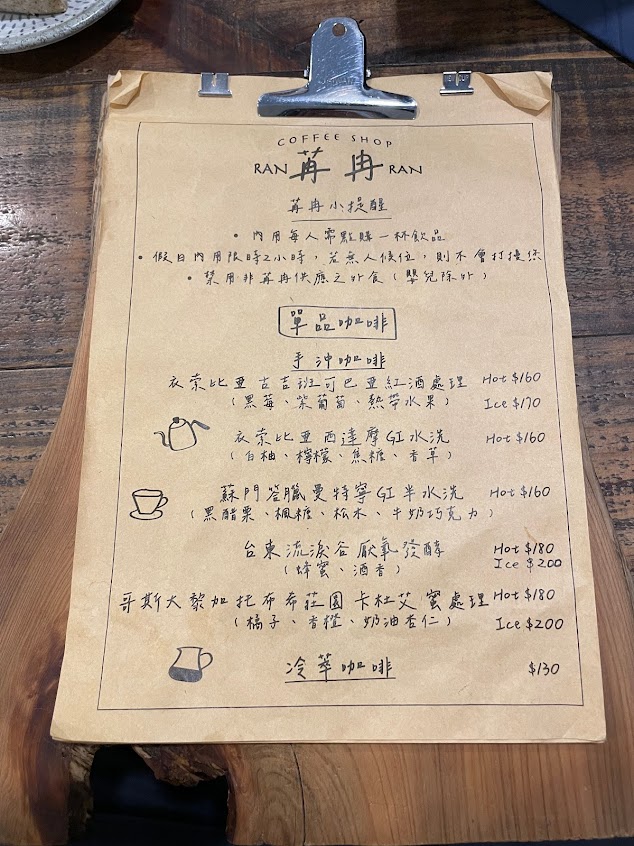 COFFEE SHOP
RAN 苒冉 RAN
苒冉小提醒
• 內用每人需點購一杯飲品
• 假日內用限時2小時，若無人候位，則不會打擾您
• 禁用非苒冉供應之外食（嬰兒除外）
單品咖啡
手沖咖啡
衣索比亞古吉班可巴亞紅酒處理 Hot $160
（黑莓、紫葡萄、熱帶水果） Ice $170
衣索比亞西達摩G1水洗 Hot $160
（白柚、檸檬、焦糖、香草）
蘇門答臘曼特寧G1半水洗 Hot $160
（黑醋栗、楓糖、松木、牛奶巧克力）
台東流淚谷厭氧發酵 Hot $180
（蜂蜜、酒香） Ice $200
哥斯大黎加托布希莊園卡杜艾蜜處理 Hot $180
（橘子、香橙、奶油杏仁） Ice $200
冷萃咖啡 $130